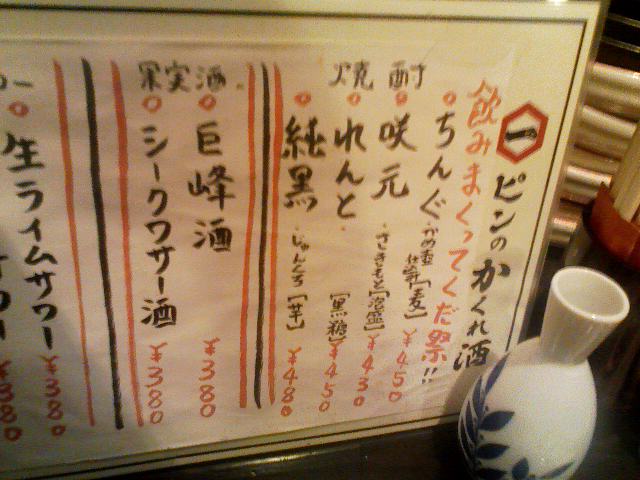 一 ピンのかくれ酒
飲みまくってくだ祭!!
焼酎
ちんぐ・かめ壺仕込[麦] ¥450
咲元 さきもと[泡盛] ¥430
れんと [黒糖] ¥450
純黒・じゅんくろ[芋] ¥480
果実酒
巨峰酒 ¥380
シークワサー酒 ¥380
ー
生ライムサワー ¥380
ワー ¥380